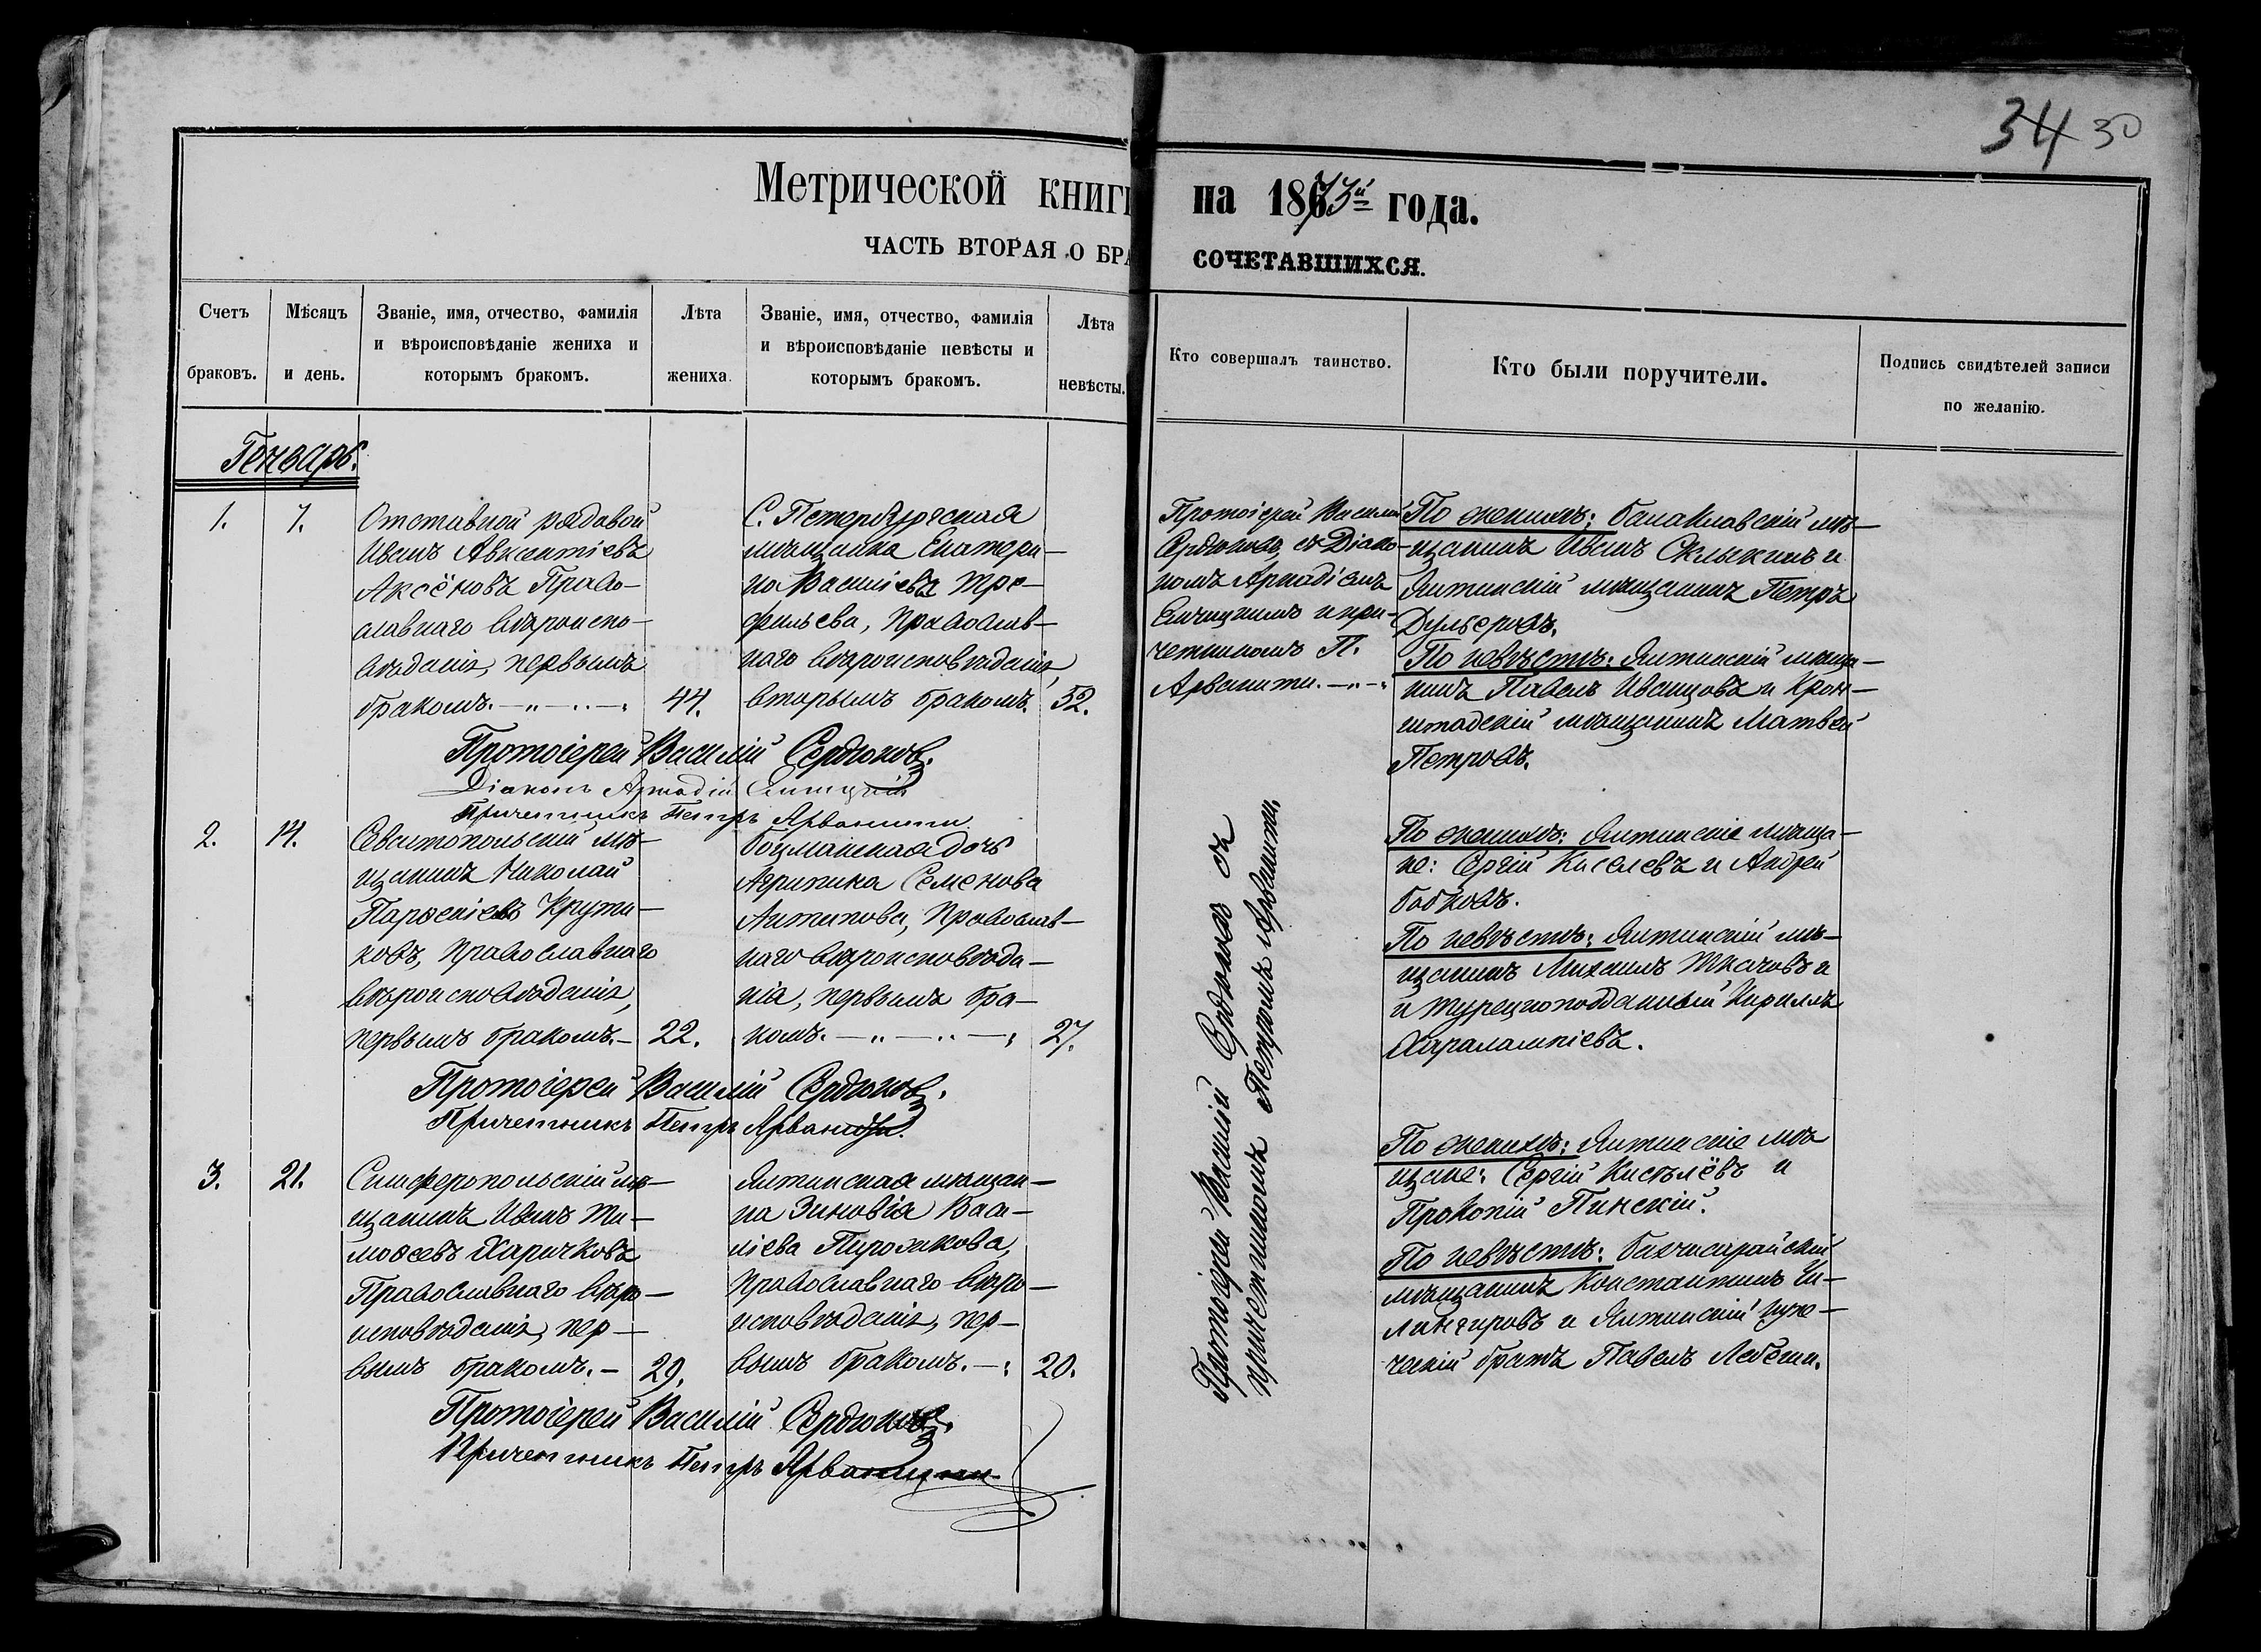 34 30
Метрической книги на 1873й года.
ЧАСТЬ ВТОРАЯ О БРА СОЧЕТАВШИХСЯ.
Счетъ браковъ.
Мѣсяцъ и день.
Званіе, имя, отчество, фамилія
и вѣроисповѣданіе жениха и
которымъ бракомъ.
Лѣта
жениха.
Званіе, имя, отчество, фамилія
и вѣроисповѣданіе невѣсты и
которымъ бракомъ.
Лѣта
невѣсты.
Кто совершалъ таинство.
Кто были поручители.
Подпись свидѣтелей записи
по желанію.
Генварь.
1. 7.
Отставной рядовой
Иванъ Авксентіевъ
Аксёновъ Право-
славнаго вѣроиспо-
вѣданія, первымъ
бракомъ. 44.
С. Петербургская
мѣщанка Екатери-
на Васильева Тре-
фильева, Православ-
наго вѣроисповѣданія,
вторымъ бракомъ. 52.
Протоіерей Василій
Сердюковъ, съ Діако-
номъ Аркадіемъ
и при-
четникомъ П.
Арванити.
По женихѣ: балаклавскій мѣ-
щанинъ Иванъ Склыкинъ и
Ялтинскій мѣщанинъ Петръ
По невѣстѣ: Ялтинскій мѣща-
нинъ Павелъ Иванцовъ и Крон-
штадскій мѣщанинъ Матвей
Петровъ.
Протоіерей Василій Сердюковъ.
Діаконъ Аркадій
Причетникъ Петръ Арванити
2. 14.
Севастопольскій мѣ-
щанинъ Николай
Крути-
ковъ, православнаго
вѣроисповѣданія,
первымъ бракомъ. 22.
боцманская дочь
Агрипина Семенова
Антипова, Православ-
наго вѣроисповѣда-
нія, первымъ бра-
комъ. 27.
Протоіерей Василій Сердюковъ съ
причетникомъ Петромъ Арванити.
По женихѣ: Ялтинскіе мѣща-
не: Сергій Киселевъ и Андрей
бобковъ.
По невѣстѣ: Ялтинскій мѣ-
щанинъ Михаилъ Ткачовъ и
и турецкоподданный Кириллъ
Харалампіевъ.
Протоіерей Василій Сердюковъ.
Причетникъ Петръ Арванити.
3. 21.
Симферопольскій мѣ-
щанинъ Иванъ Ти-
моѳеевъ Харичковъ
Православнаго вѣро-
исповѣданія, пер-
вымъ бракомъ. 29.
Ялтинская мѣщан-
ка Зиновія Васи-
лієва Пирожкова,
православнаго вѣро-
исповѣданія, пер-
вымъ бракомъ. 20.
По женихѣ: Ялтинскіе мѣ
щане: Сергій Кисѣлёвъ и
Прокопій Пинскій.
По невѣстѣ: бахчисарайскій
мѣщанинъ Константинъ Чи-
лингировъ и Ялтинскій купе-
ческій братъ Павелъ Лебеши.
Протоіерей Василій Сердюковъ.
Причетникъ Петръ Арванити